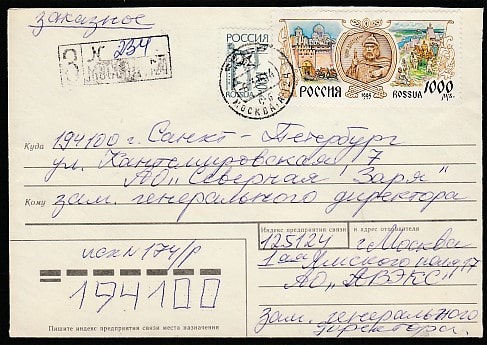 заказное
З
N 234
МОСКВА
РОССИЯ
ROSSIJA
МОСКВА
РОССИЯ
1995
ROSSIJA
1000
194100 г. Санкт-Петербург
Куда
ул. Кантемировская 7
АО "Северная Заря"
Кому
зам. генерального директора
Индекс предприятия связи и адрес отправителя
125124 г. Москва
1ая Ямского поля 17
АО "АВЭКС"
зам. генерального
директора
исх N 174/р
194100
Пишите индекс предприятия связи места назначения